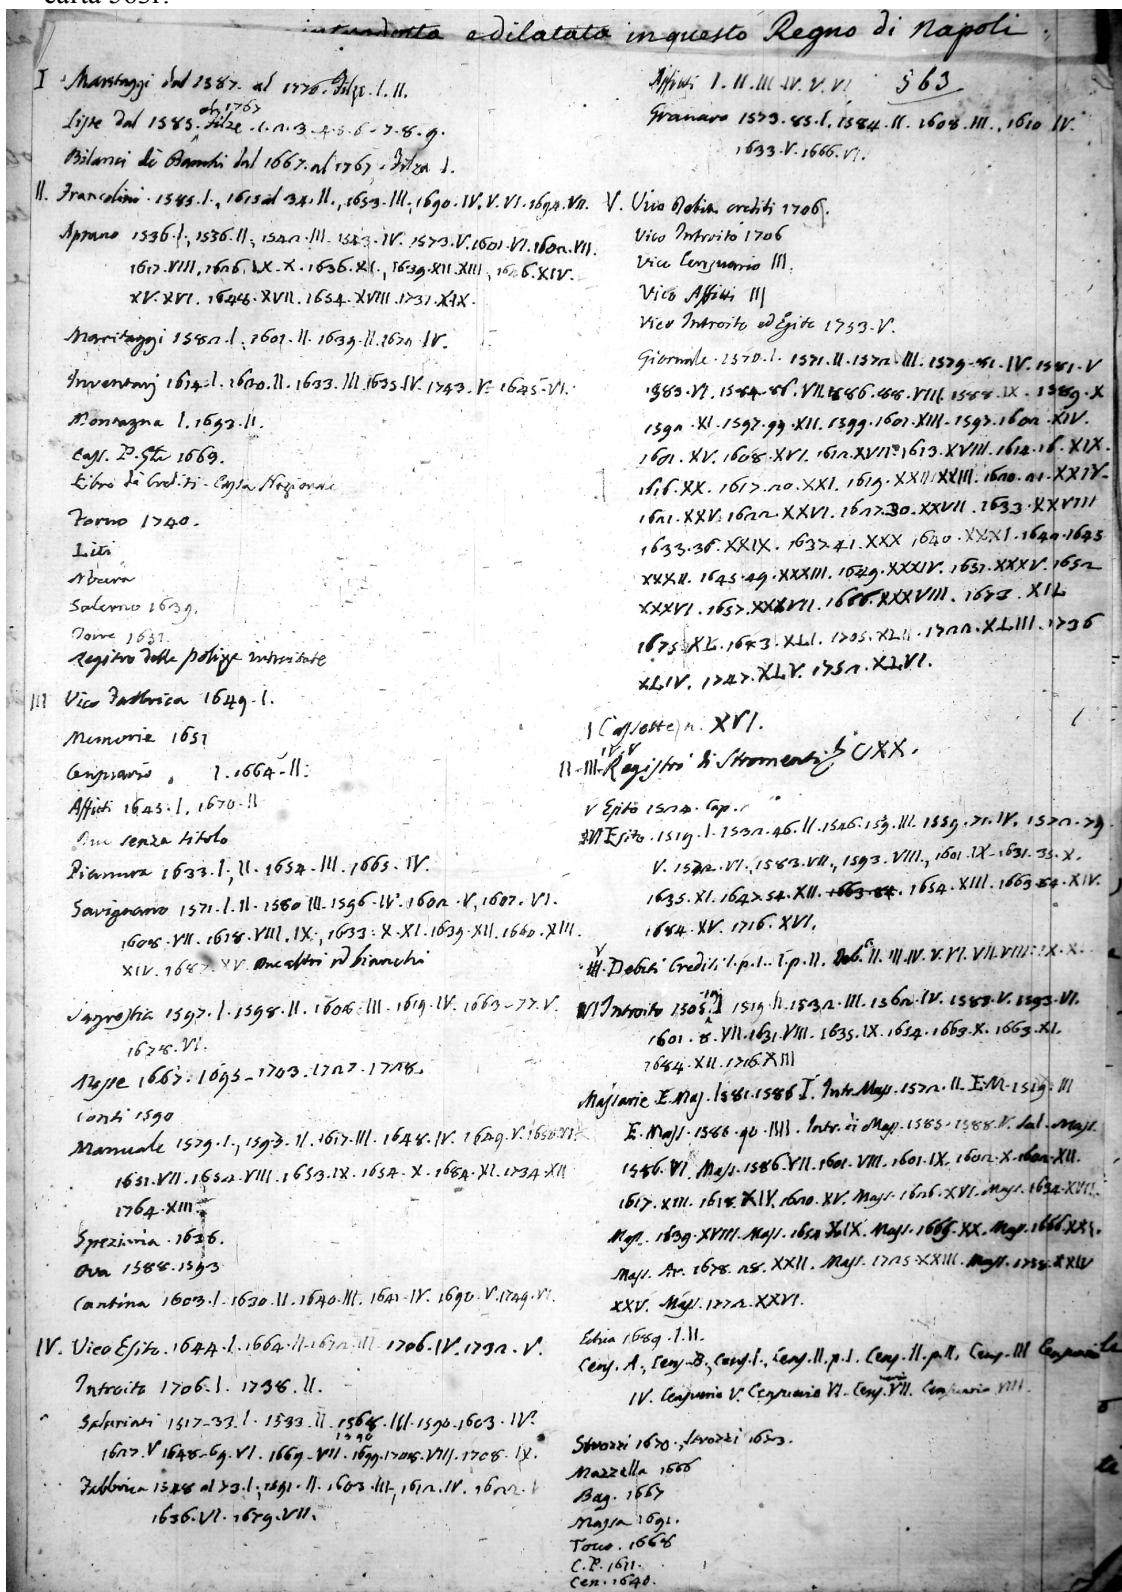 carta 563r.
edilatata in questo Regno di Napoli
I Maritaggi dal 1587. al 1776. Filze. I. II.
al 1767
Liste dal 1585. Filze. 1. 2. 3. 4. 5. 6. 7. 8. 9.
Bilanci di Banchi dal 1667. al 1767. Filza I.
II. Francolini. 1585. I., 1615 al 34. II., 1653. III., 1690. IV. V. VI. 1694. VII.
Aprano 1536. I., 1536. II., 1542. III. 1543. IV. 1573. V. 1601. VI. 1602. VII.
1617. VIII, 1626. IX. X. 1636. XI., 1639. XII. XIII., 1646. XIV.
XV. XVI. 1648. XVII. 1654. XVIII. 1731. XIX.
Maritaggi 1582. I., 1601. II. 1639. II. 1672. IV.
Inventarj 1614. I. 1620. II. 1633. III. 1635. IV. 1743. V. 1645. VI.
Montagna I. 1693. II.
1669.
Libro di Crediti - Cassa Nazionale
Forno 1740.
Liti
Salerno 1639.
Torre 1631.
Registro delle polize introitate
III Vico Fabbrica 1649. I.
Memorie 1651
Censuario I. 1664. II.
Affitti 1645. I, 1670. II
Due senza titolo
Pianura 1633. I., II. 1654. III. 1665. IV.
Savignano 1571. I. II. 1580 III. 1596. IV. 1602. V, 1607. VI.
1608. VII. 1618. VIII. IX., 1633. X. XI. 1639. XII. 1660. XIII.
XIV. 1687. XV. Due altri in bianchi
Sagrestia 1597. I. 1598. II. 1606. III. 1619. IV. 1663-77. V.
1678. VI.
Messe 1667. 1695-1703. 1727. 1728.
Conti 1590
Manuale 1579. I., 1593. II. 1617. III. 1648. IV. 1649. V. 1650. VI
1651. VII. 1652. VIII. 1653. IX. 1654. X. 1684. XI. 1734. XII
1764. XIII.
Spezieria. 1636.
Ova 1588. 1593
Cantina 1603. I. 1630. II. 1640. III. 1641. IV. 1690. V. 1749. VI.
IV. Vico Esito. 1644. I. 1664. II. 1672. III. 1706. IV. 1732. V.
Introito 1706. I. 1738. II.
Salariati 1517-33. I. 1533. II. 1568. III. 1590. 1603. IV.
1590
1627. V 1648-69. VI. 1669. VII. 1699. 1708. VIII. 1708. IX.
Fabbrica 1548 al 73. I., 1591. II. 1603. III, 1612. IV. 1622. V
1636. VI. 1679. VII.
Affitti I. II. III. IV. V. VI 563
Granaro 1573. 85. I., 1584. II. 1608. III., 1610 IV.
1633. V. 1666. VI.
V. Vico Debiti crediti 1706.
Vico Introito 1706
Vico Censuario III.
Vico Affitti III
Vico Introito ed Esito 1753. V.
Giornale. 1570. I. 1571. II. 1572. III. 1579-81. IV. 1581. V
1583. VI. 1584-86. VII. 1586. 88. VIII. 1588. IX. 1589. X
1592. XI. 1597. 99. XII. 1599. 1601. XIII. 1597. 1602. XIV.
1601. XV. 1608. XVI. 1612. XVII. 1613. XVIII. 1614. 16. XIX.
1616. XX. 1617. 20. XXI. 1619. XXII XXIII. 1620. 21. XXIV.
1621. XXV. 1622. XXVI. 1627. 30. XXVII. 1633. XXVIII
1633. 36. XXIX. 1637. 41. XXX 1640. XXXI. 1642. 1645
XXXII. 1645. 49. XXXIII. 1649. XXXIV. 1651. XXXV. 1652
XXXVI. 1657. XXXVII. 1666. XXXVIII. 1673. XIL
1675. XL. 1643. XLI. 1705. XLII. 1722. XLIII. 1736
XLIV. 1747. XLV. 1752. XLVI.
I Cassette n. XVI.
IV V
II-III Registri di Stromenti CXX.
V Esito 1524. Cap.
Esito. 1519. I. 1532. 46. II. 1546. 159. III. 1559. 71. IV. 1572. 79
V. 1572. VI., 1583. VII., 1593. VIII., 1601. IX. 1631. 35. X.
1635. XI. 1647. 54. XII. 1663-84. 1654. XIII. 1663-84. XIV.
1684. XV. 1716. XVI.
V
Debiti Crediti I. p. I. I. p. II. Deb. II. III. IV. V. VI. VII. VIII. IX. X.
VI Introito 1505. I 1519. II. 1532. III. 1562. IV. 1583. V. 1593. VI.
1601. 8. VII. 1631. VIII. 1635. IX. 1654. 1663. X. 1663. XI.
1684. XII. 1716. XIII
Massarie E. Mass. 1581. 1586 I. Intr. Mass. 1572. II. E. M. 1519. III
E. Mass. 1586. 90. IIII. Intr. di Mass. 1585. 1588. V. Sal. Mass.
1586. VI. Mass. 1586. VII. 1601. VIII. 1601. IX. 1602. X. 1602. XII.
1617. XIII. 1618. XIV. 1620. XV. Mass. 1626. XVI. Mass. 1634. XVII.
Mass. 1639. XVIII. Mass. 1652 XIX. Mass. 1665. XX. Mass. 1666 XXI.
Mass. Ar. 1678. 28. XXII. Mass. 1725. XXIII. Mass. 1738. XXIV
XXV. Mass. 1772. XXVI.
1689. I. II.
Cens. A., Cens. B., Cens. I., Cens. II. p. I. Cens. II. p. II. Cens. III Censuario
IV. Censuario V. Censuario VI. Cens. VII. Censuario VIII.
Strozzi 1670. Strozzi 1653.
Mazzella 1666
Bag. 1667
Massa 1691.
Tocco. 1668
C. P. 1611.
Cen. 1640.